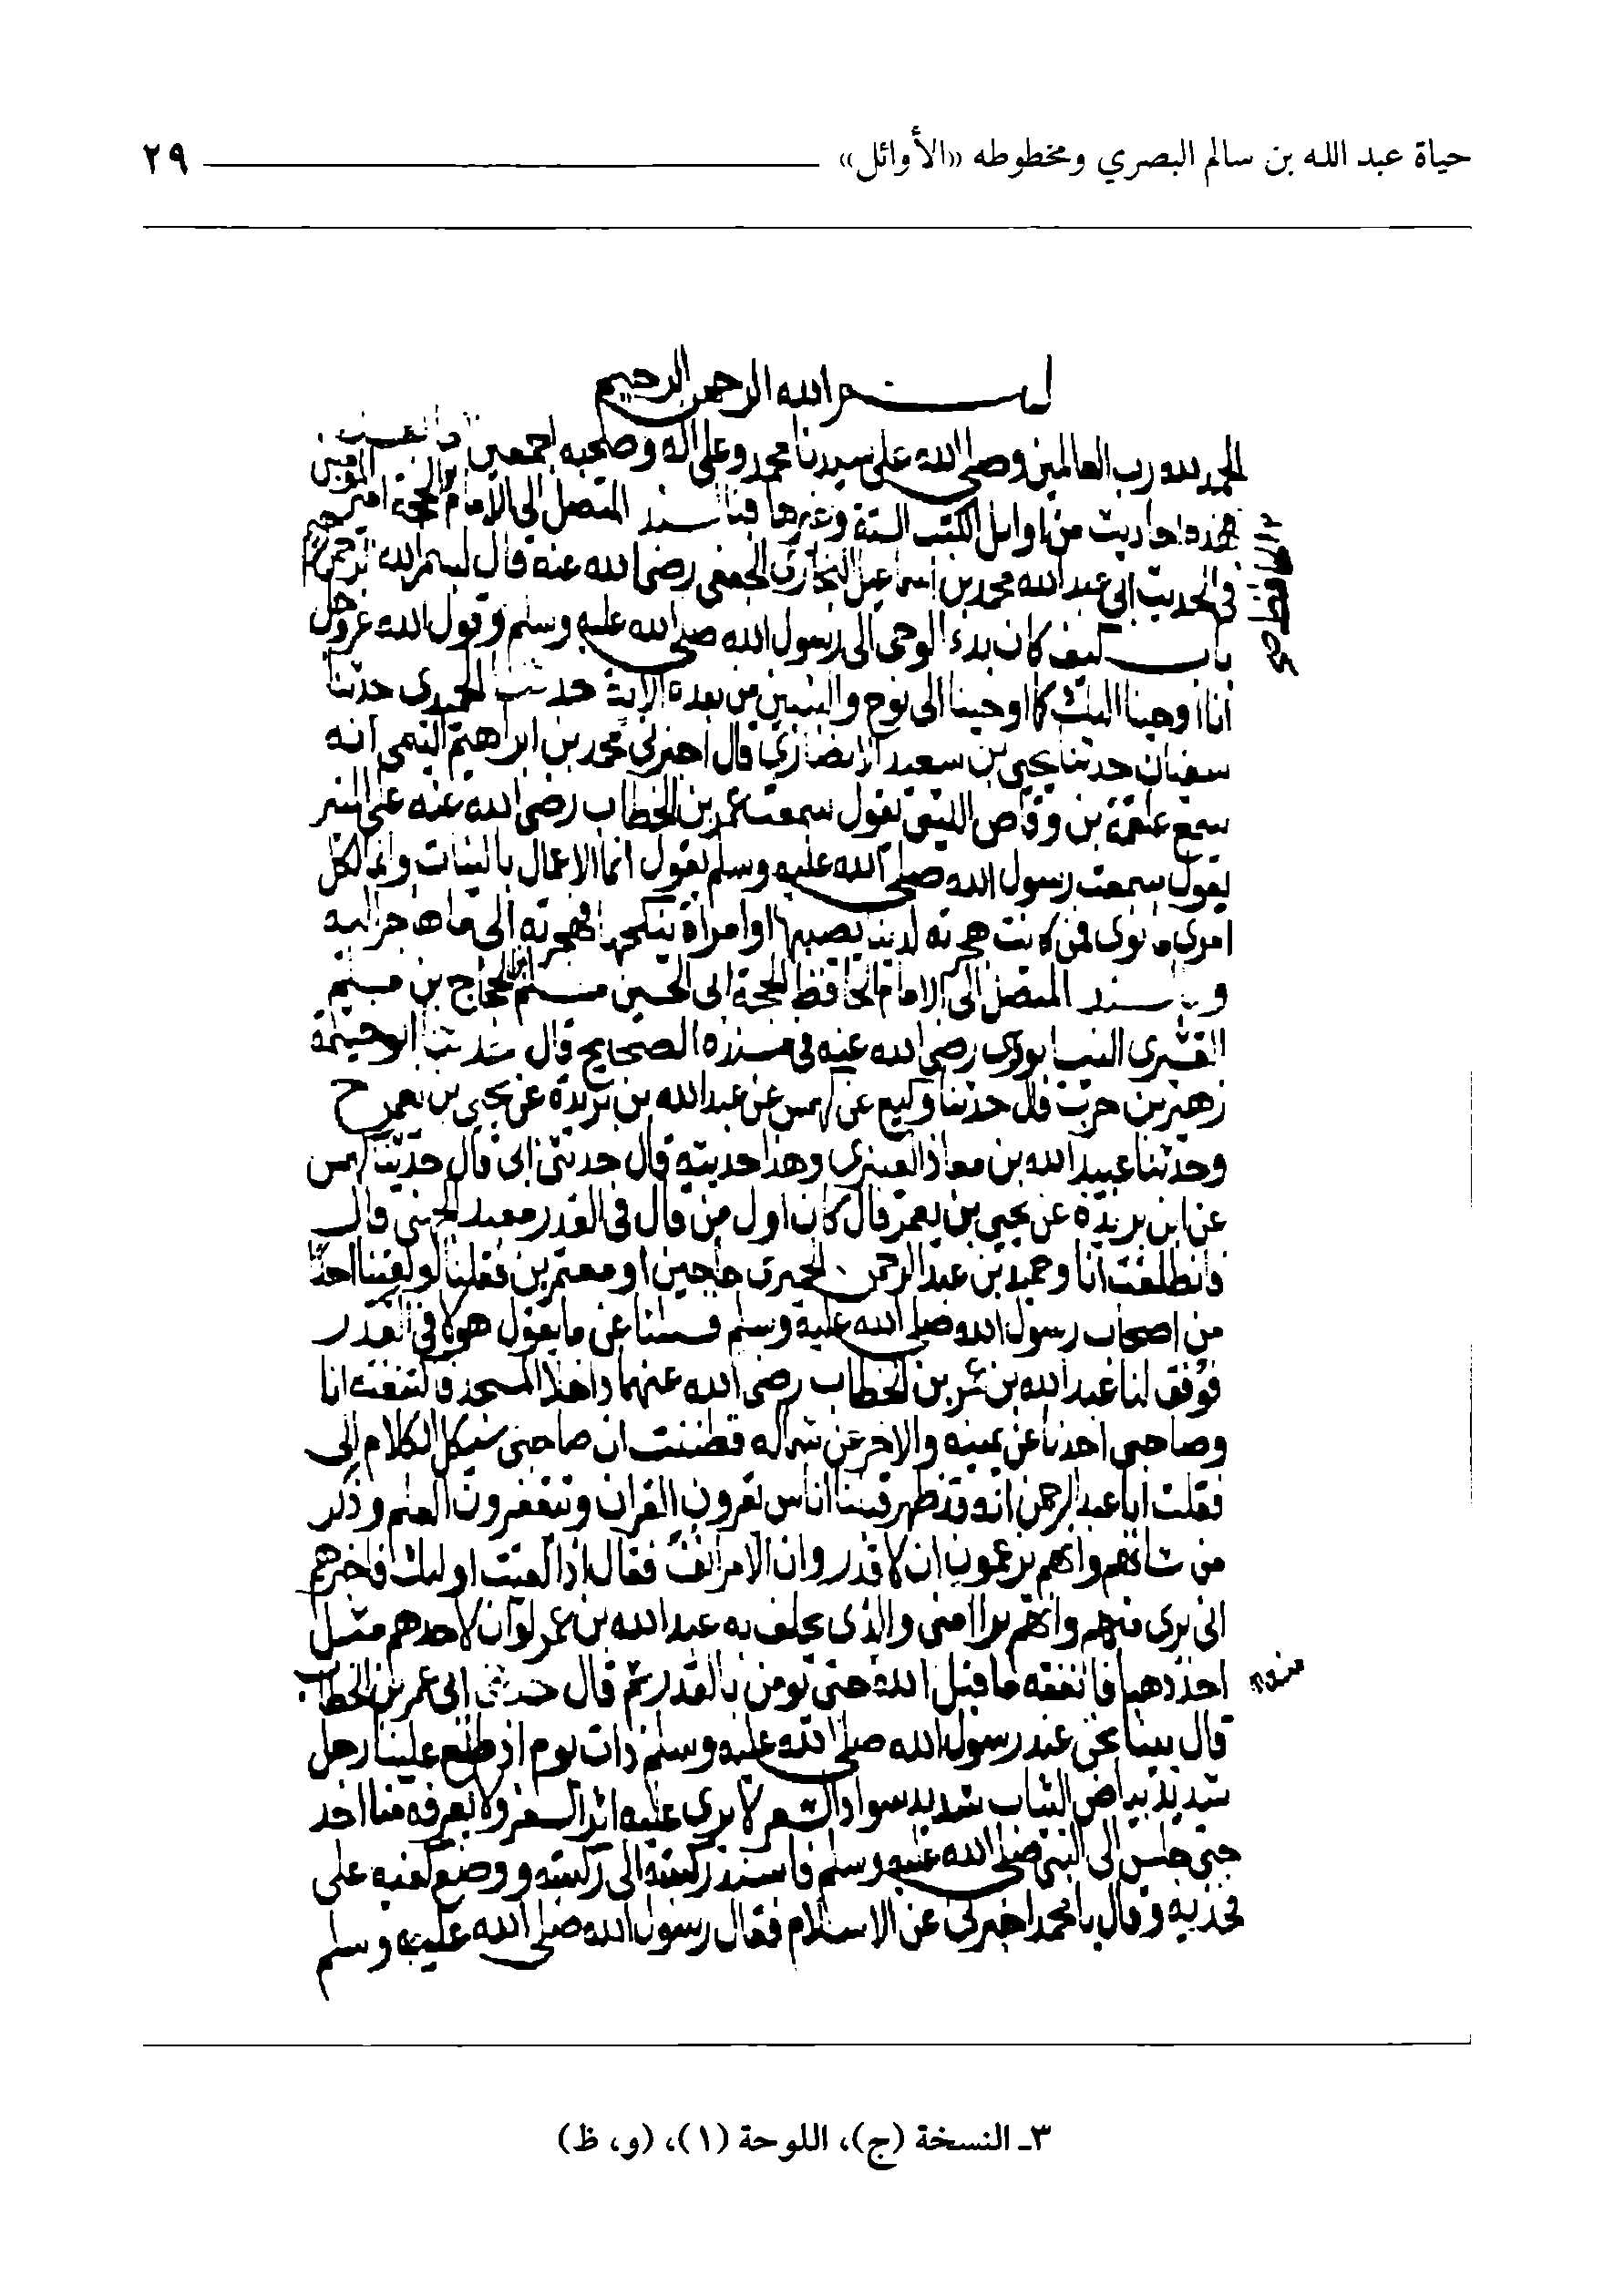 حياة عبد الله بن سالم البصري ومخطوطه «الأوائل» ٢٩
بسم الله الرحمن الرحيم
الحمد لله رب العالمين وصلى الله على سيدنا محمد وعلى اله وصحبه اجمعين
هذه احاديث من اوايل الكتب الستة وغيرها فبالسند المتصل الى الامام الحجة امير المومنين
في الحديث ابي عبد الله محمد بن اسماعيل البخاري الجعفي رضي الله عنه قال بسم الله الرحمن الرحيم
باب كيف كان بدء الوحي الى رسول الله صلى الله عليه وسلم وقول الله عز وجل
انا اوحينا اليك كما اوحينا الى نوح والنبيين من بعده الاية حدثنا الحميدي حدثنا
سفيان حدثنا يحيى بن سعيد الانصاري قال اخبرني محمد بن ابراهيم التيمي انه
سمع علقمة بن وقاص الليثي يقول سمعت عمر بن الخطاب رضي الله عنه على المنبر
يقول سمعت رسول الله صلى الله عليه وسلم يقول انما الاعمال بالنيات وانما لكل
امرئ ما نوى فمن كانت هجرته لدنيا يصيبها او امراة ينكحها فهجرته الى ما هاجر اليه
وبالسند المتصل الى الامام الحافظ الحجة ابي الحسين مسلم بن الحجاج بن مسلم
القشيري النيسابوري رضي الله عنه في مسنده الصحيح قال حدثنا ابو خيثمة
زهير بن حرب قال حدثنا وكيع عن كهمس عن عبد الله بن بريدة عن يحيى بن يعمر ح
وحدثنا عبيد الله بن معاذ العنبري وهذا حديثه قال حدثني ابي قال حدثنا كهمس
عن ابن بريدة عن يحيى بن يعمر قال كان اول من قال في القدر معبد الجهني قال
فانطلقت انا وحميد بن عبد الرحمن الحميري حاجين او معتمرين فقلنا لو لقينا احدا
من اصحاب رسول الله صلى الله عليه وسلم فسالنا عن ما يقول هولا في القدر
فوفق لنا عبد الله بن عمر بن الخطاب رضي الله عنهما داخلا المسجد فاكتنفته انا
وصاحبي احدنا عن يمينه والاخر عن شماله فظننت ان صاحبي سيكل الكلام الى
فقلت ابا عبد الرحمن انه قد ظهر قبلنا اناس يقرون القران ويتقفرون العلم وذكر
من شانهم وانهم يزعمون ان لا قدر وان الامر انف فقال اذا لقيت اوليك فاخبرهم
اني بري منهم وانهم براا مني والذي يحلف به عبد الله بن عمر لو ان لاحدهم مثل
احد ذهبا فانفقه ما قبل الله حتى تومن بالقدر ثم قال حدثني ابي عمر بن الخطاب
قال بينما نحن عند رسول الله صلى الله عليه وسلم ذات يوم اذ طلع علينا رجل
شديد بياض الثياب شديد سواد الشعر لا يرى عليه اثر السفر ولا يعرفه منا احد
حتى جلس الى النبي صلى الله عليه وسلم فاسند ركبتيه الى ركبتيه ووضع كفيه على
فخذيه وقال يا محمد اخبرني عن الاسلام فقال رسول الله صلى الله عليه وسلم
٣ـ النسخة (ج)، اللوحة (١)، (و، ظ)